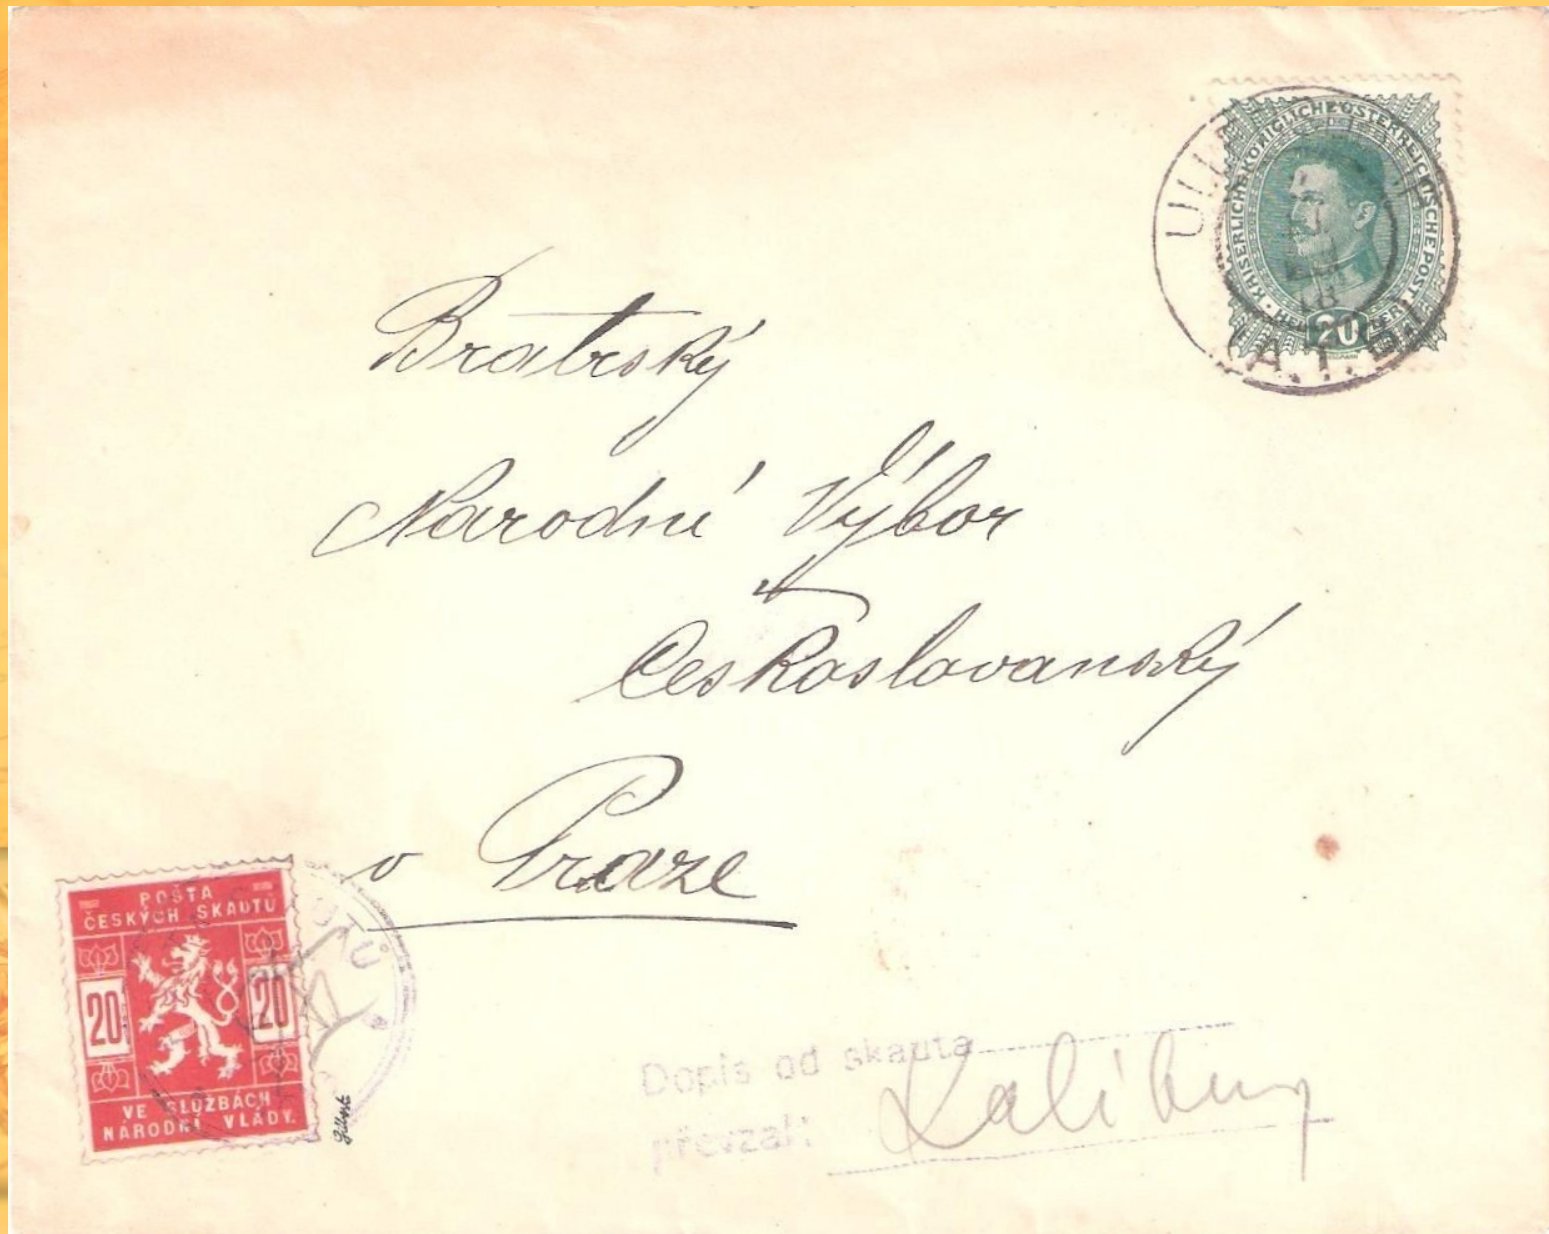 KAISERLICHE KÖNIGLICHE ÖSTERREICHISCHE POST
20
A.T.
Bratrský
Národní Výbor
Československý
v Praze
POŠTA
ČESKÝCH SKAUTŮ
20 20
VE SLUŽBÁCH
NÁRODNÍ VLÁDY.
Gilbert
Dopis od skauta
převzal: